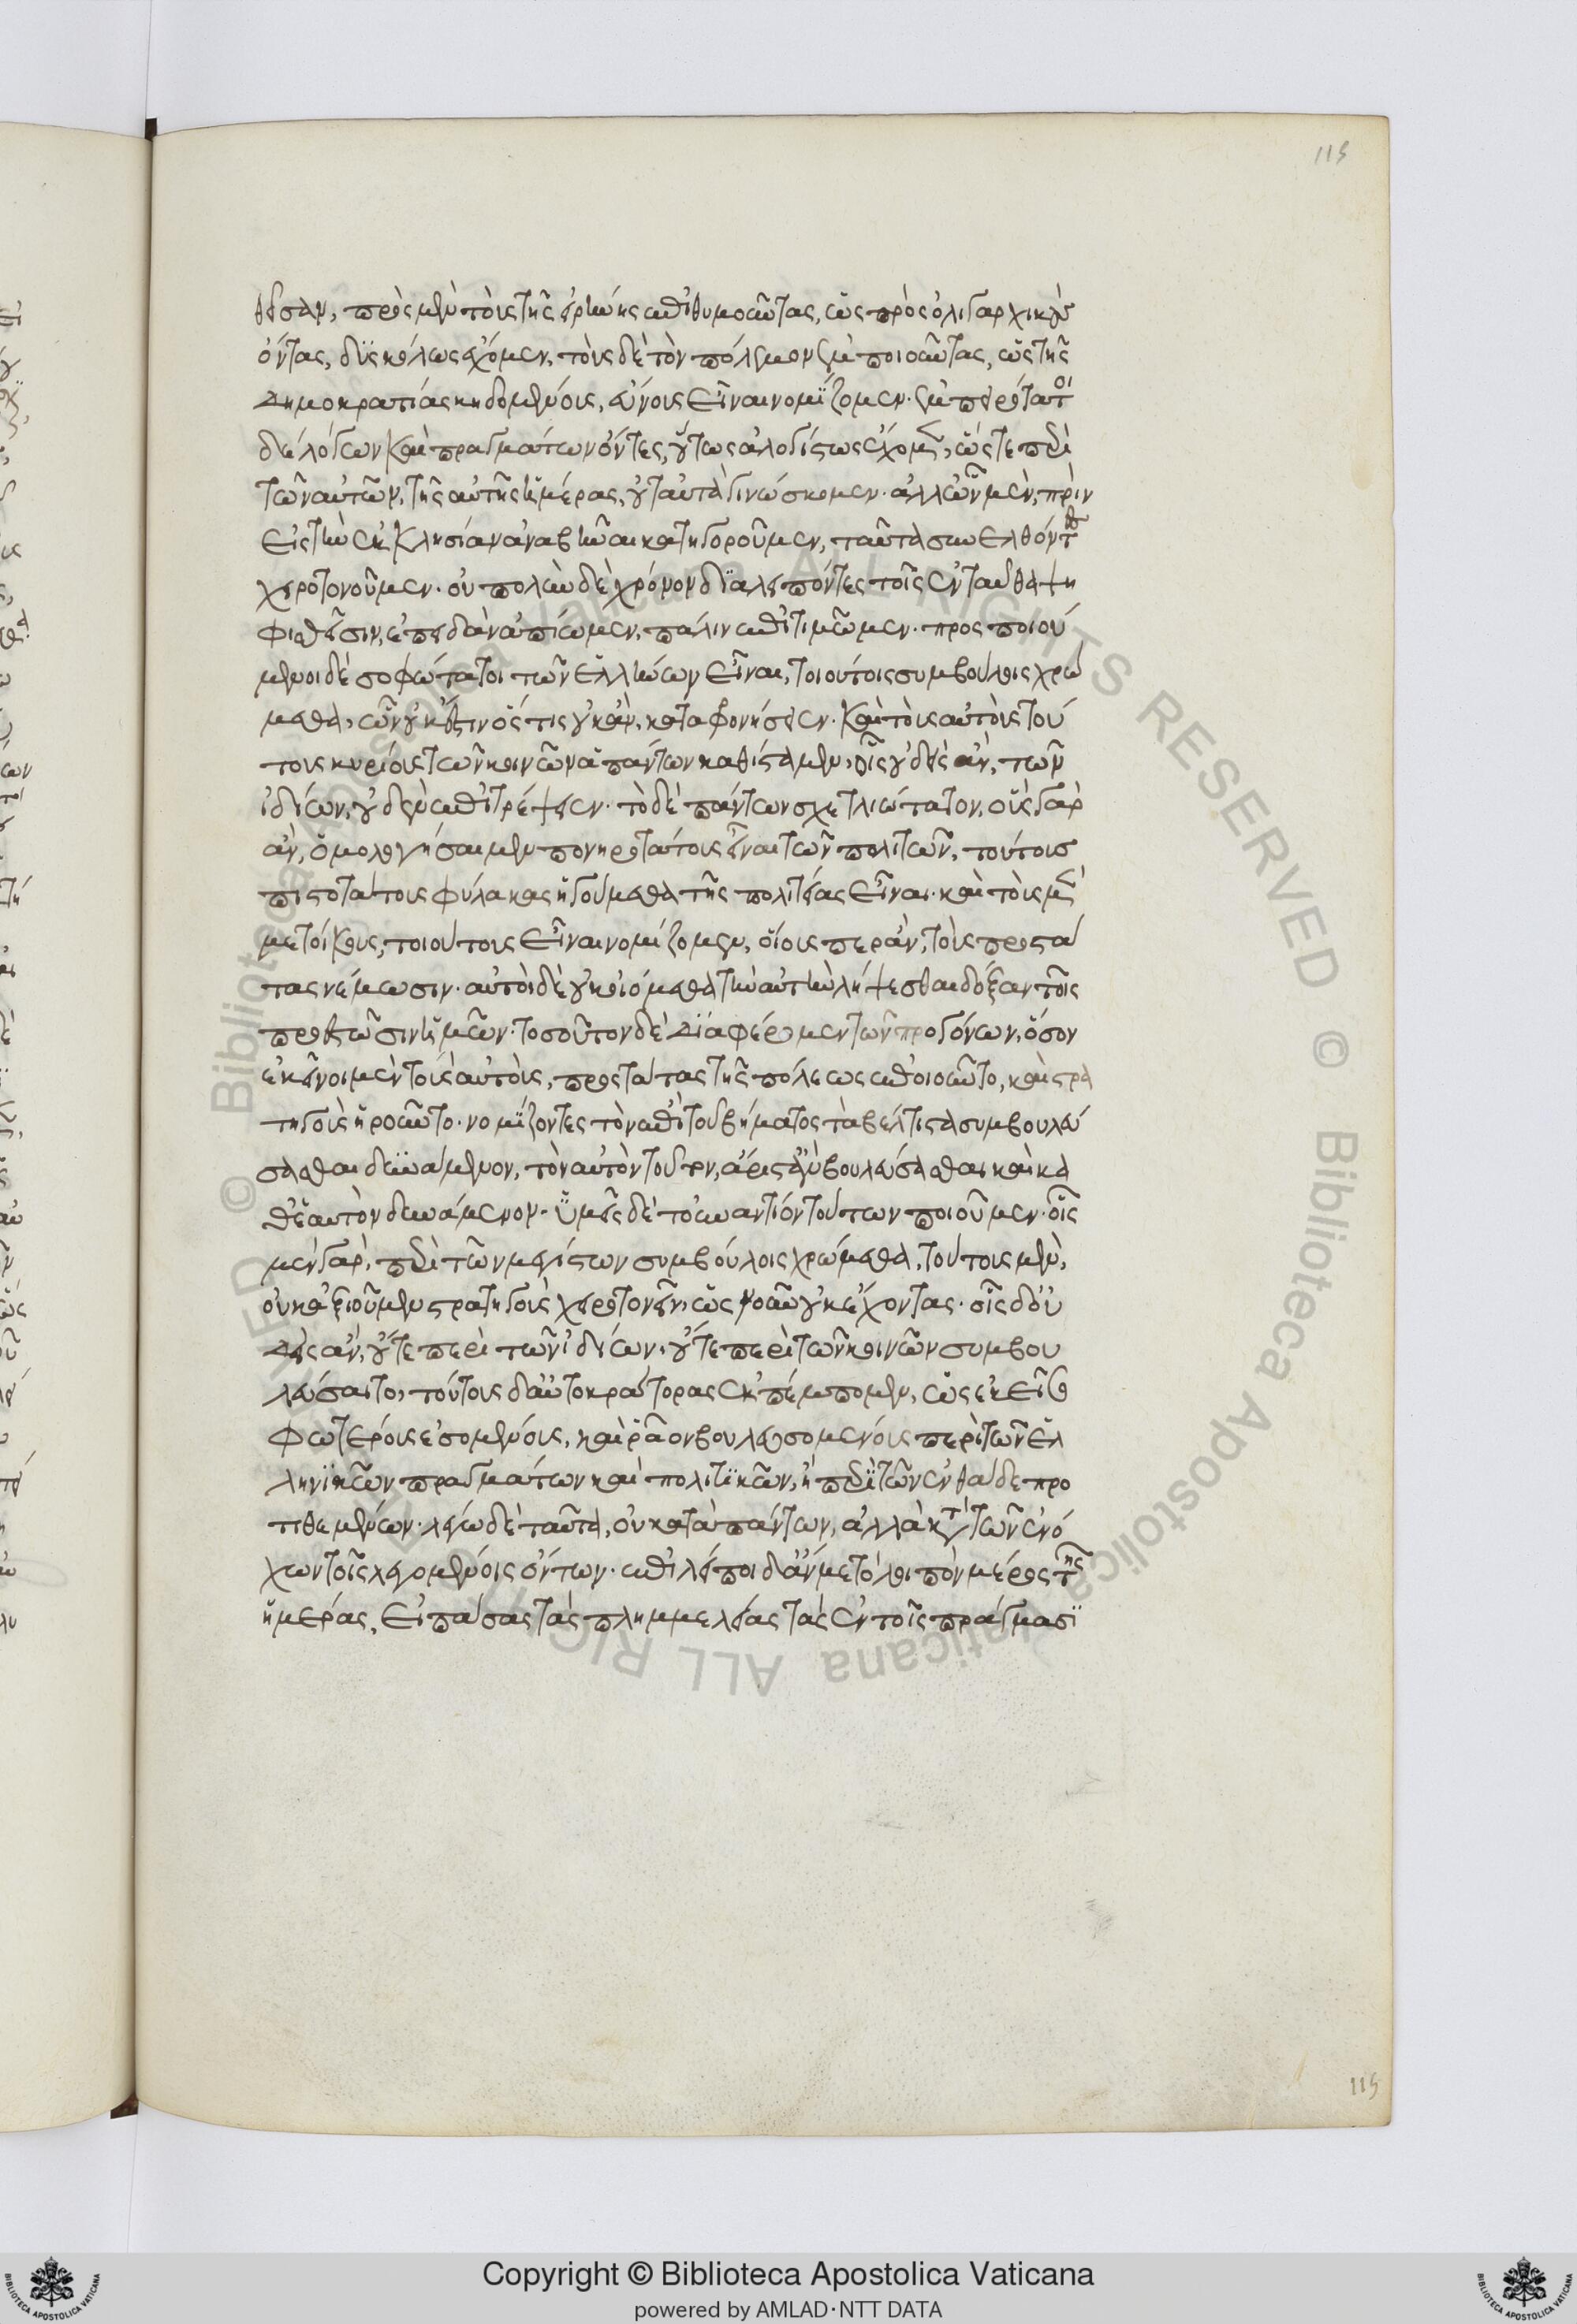 115
θεσαν, πρὸς μὲν τοὺς τῆς εἰρήνης ἐπιθυμοῦντας, ὡς πρὸς ὀλιγαρχικοὺς
ὄντας, δυσκόλως ἔχομεν, τοὺς δὲ τὸν πόλεμον ἐμποιοῦντας, ὡς τῆς
δημοκρατίας κηδομένους, εὔνους εἶναι νομίζομεν. ἐμπειρότατοι
δὲ λόγων καὶ πραγμάτων ὄντες, οὕτως ἀλογίστως ἔχομεν, ὥστε περὶ
τῶν αὐτῶν, τῆς αὐτῆς ἡμέρας, οὐ ταυτὰ γινώσκομεν. ἀλλ' ὧν μὲν, πρὶν
εἰς τὴν ἐκκλησίαν ἀναβῆναι κατηγοροῦμεν, ταῦτα συνελθόντες
χειροτονοῦμεν. οὐ πολὺν δὲ χρόνον διαλειπόντες τοῖς ἐνταῦθα ψη
φισθεῖσιν, ἐπειδὰν ἀπίωμεν, πάλιν ἐπιτιμῶμεν. προσποιού
μενοι δὲ σοφώτατοι τῶν ἑλλήνων εἶναι, τοιούτοις συμβούλοις χρώ
μεθα, ὧν οὐκ ἔστιν ὅστις οὐκ ἂν, καταφρονήσειεν. καὶ τοὺς αὐτοὺς τού
τους κυρίους τῶν κοινῶν ἁπάντων καθίσταμεν, οἷς οὐδεὶς ἂν, τῶν
ἰδίων, οὐδὲν ἐπιτρέψειεν. τὸ δὲ πάντων σχετλιώτατον, οὓς γὰρ
ἂν, ὁμολογήσαιμεν πονηροτάτους εἶναι τῶν πολιτῶν, τούτους
πιστοτάτους φύλακας ἡγούμεθα τῆς πολιτείας εἶναι. καὶ τοὺς μὲν
μετοίκους, τοιούτους εἶναι νομίζομεν, οἵους περ ἂν, τοὺς προστά
τας νέμωσιν. αὐτοὶ δὲ οὐκ οἰόμεθα τὴν αὐτὴν λήψεσθαι δόξαν τοῖς
προεστῶσιν ἡμῶν. τοσοῦτον δὲ διαφέρομεν τῶν προγόνων, ὅσον
ἐκεῖνοι μὲν τοὺς αὐτοὺς, προστάτας τῆς πόλεως ἐποιοῦντο, καὶ στρα
τηγοὺς ᾑροῦντο. νομίζοντες τὸν ἐπὶ τοῦ βήματος τὰ βέλτιστα συμβουλεῦ
σασθαι δυνάμενον, τὸν αὐτὸν τοῦτον, ἄριστ' ἂν βουλεύσασθαι καὶ κα
θ' ἑαυτὸν δυνάμενον. ὑμεῖς δὲ τοὐναντίον τούτων ποιοῦμεν. οἷς
μὲν γὰρ, περὶ τῶν μεγίστων συμβούλοις χρώμεθα, τούτους μὲν,
οὐκ ἀξιοῦμεν στρατηγοὺς χειροτονεῖν, ὡς νοῦν οὐκ ἔχοντας. οἷς δ' οὐ
δεὶς ἂν, οὔτε περὶ τῶν ἰδίων, οὔτε περὶ τῶν κοινῶν συμβου
λεύσαιτο, τούτους δ' αὐτοκράτορας ἐκπέμπομεν, ὡς ἐκεῖ σο
φωτέροις ἐσομένους, καὶ ῥᾷον βουλευσομένους περὶ τῶν ἑλ
ληνικῶν πραγμάτων καὶ πολιτικῶν, ἢ περὶ τῶν ἐνθάδε προ
τιθεμένων. λέγω δὲ ταῦτα, οὐ κατὰ πάντων, ἀλλὰ κατὰ τῶν ἐνό
χων τοῖς λεγομένοις ὄντων. ἐπιλείποι δ' ἄν με τὸ λοιπὸν μέρος τῆς
ἡμέρας, εἰ πάσας τὰς πλημμελείας τὰς ἐν τοῖς πράγμασι
115
© Biblioteca Apostolica Vaticana ALL RIGHTS RESERVED © Biblioteca Apostolica Vaticana ALL RIGHTS RESERVED
Copyright © Biblioteca Apostolica Vaticana
powered by AMLAD·NTT DATA